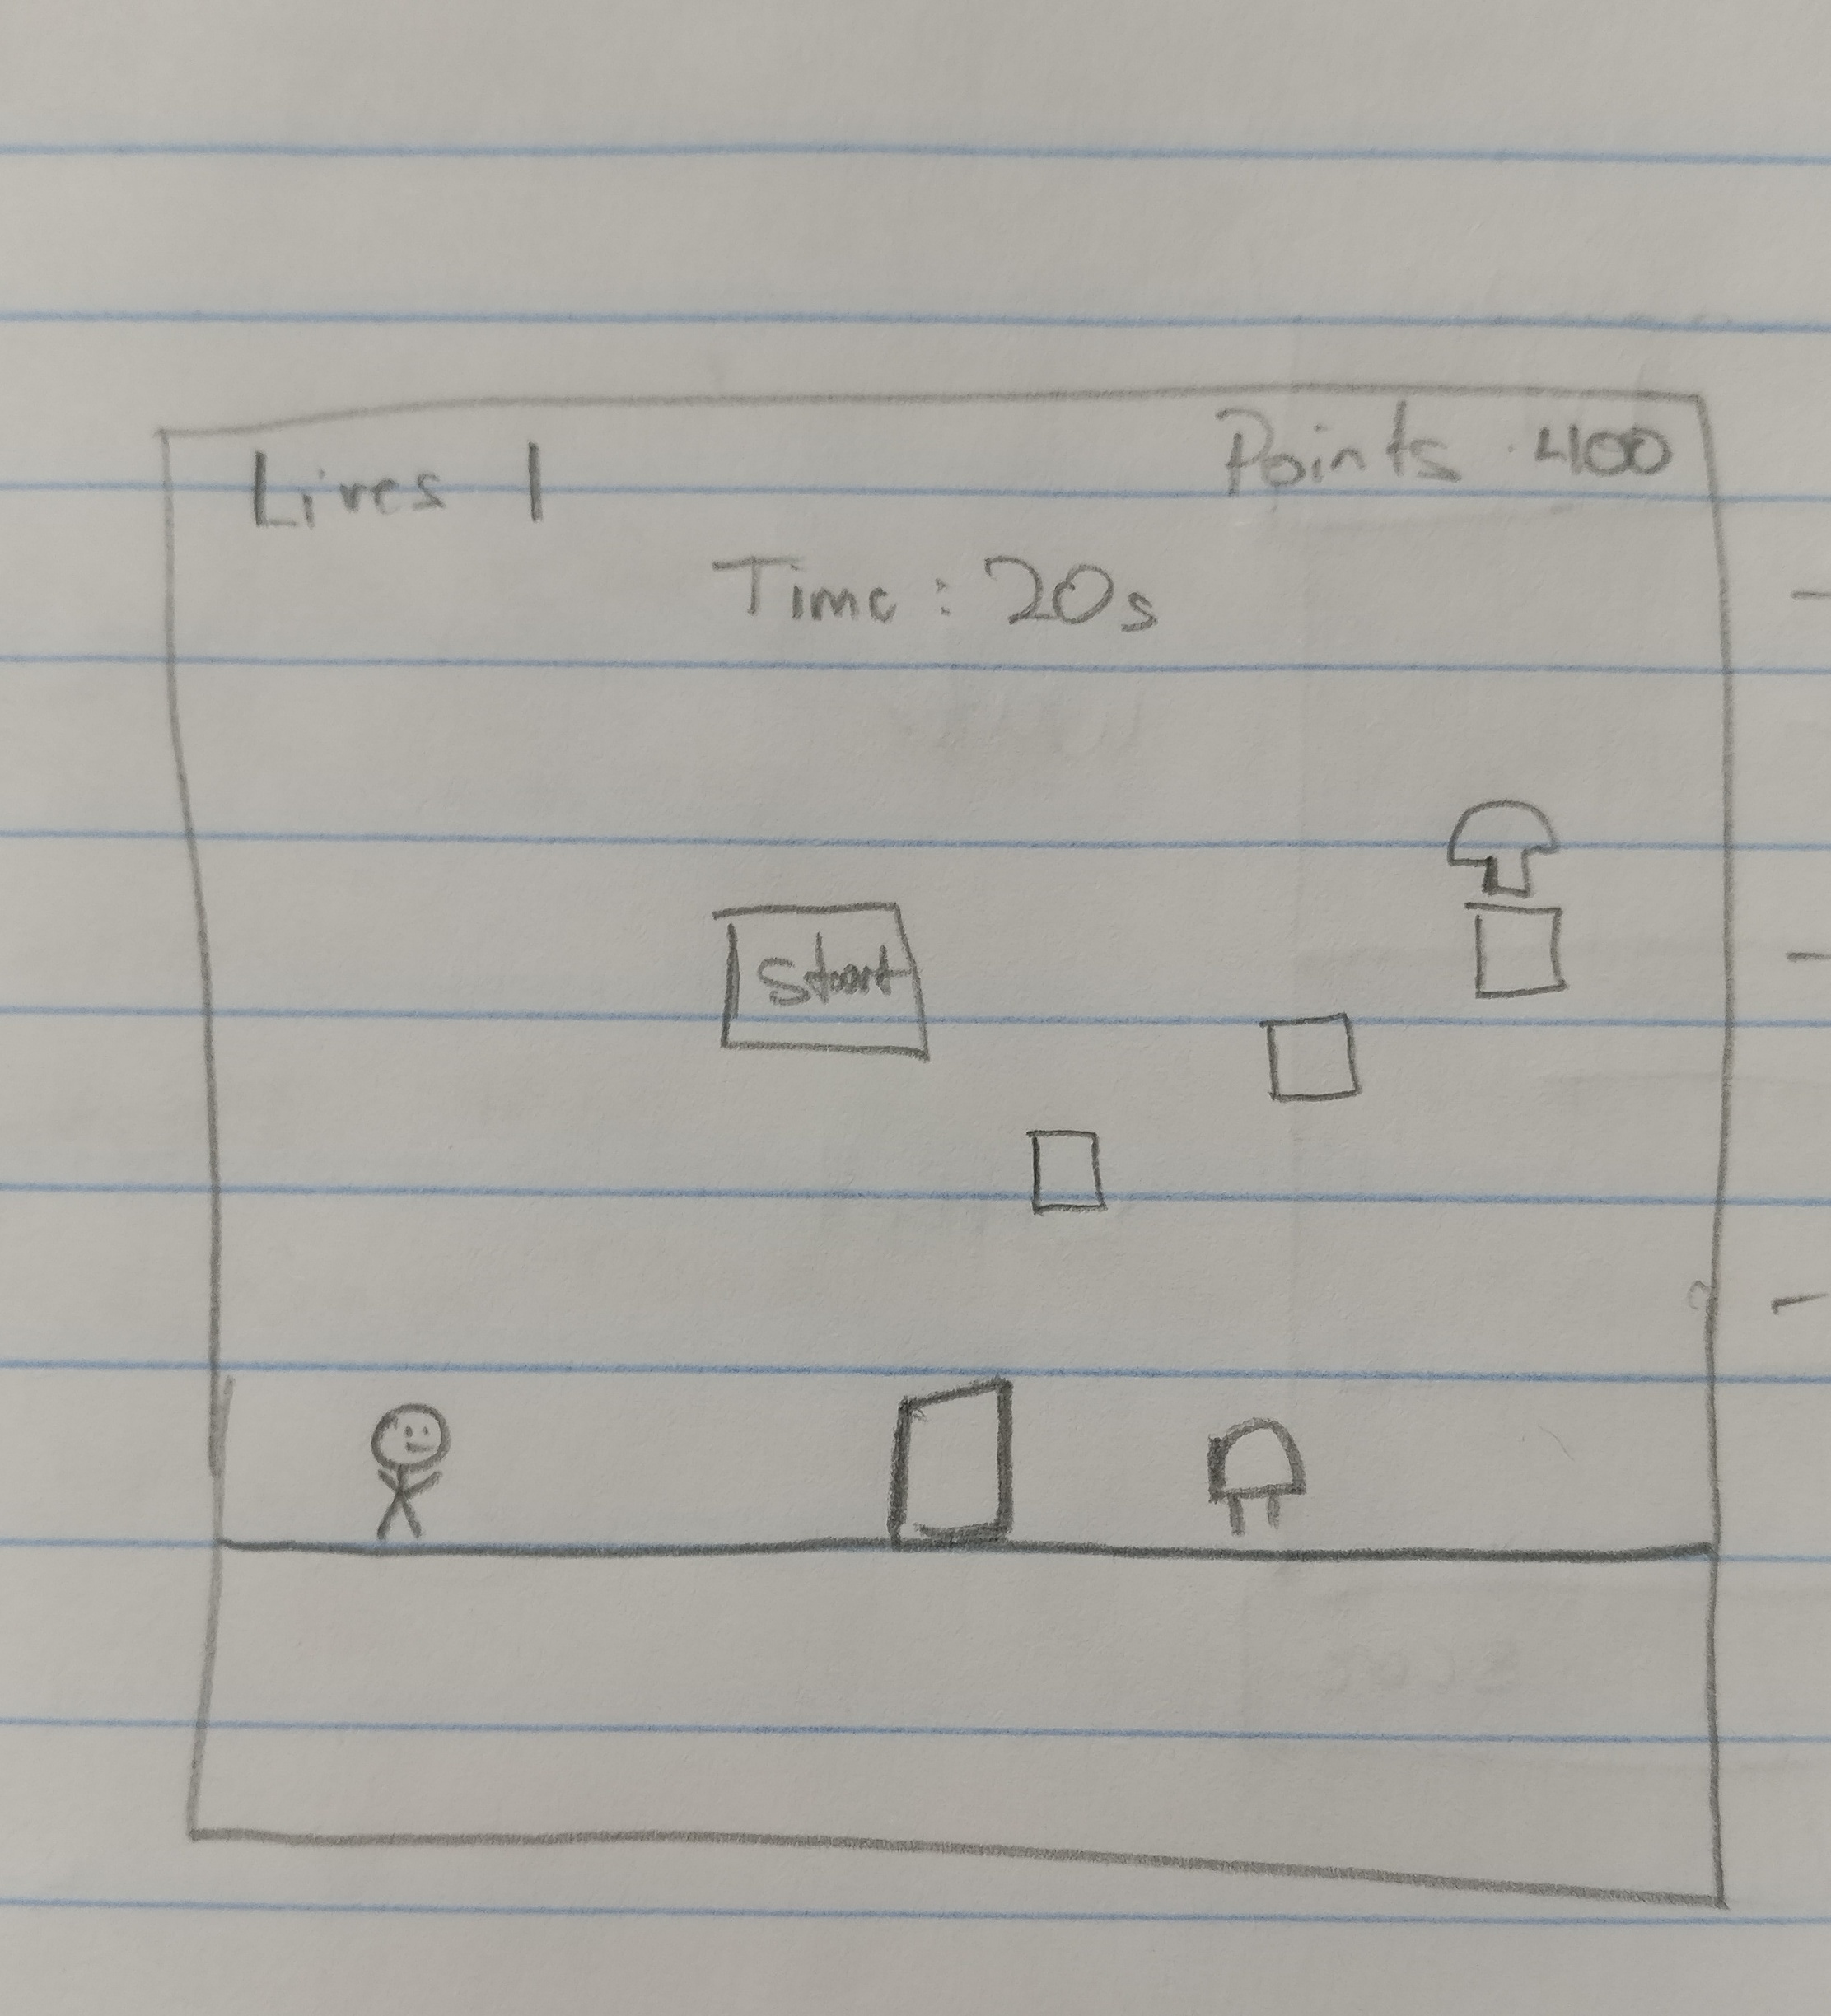 Lives 1
Points 400
Time: 20s
Start